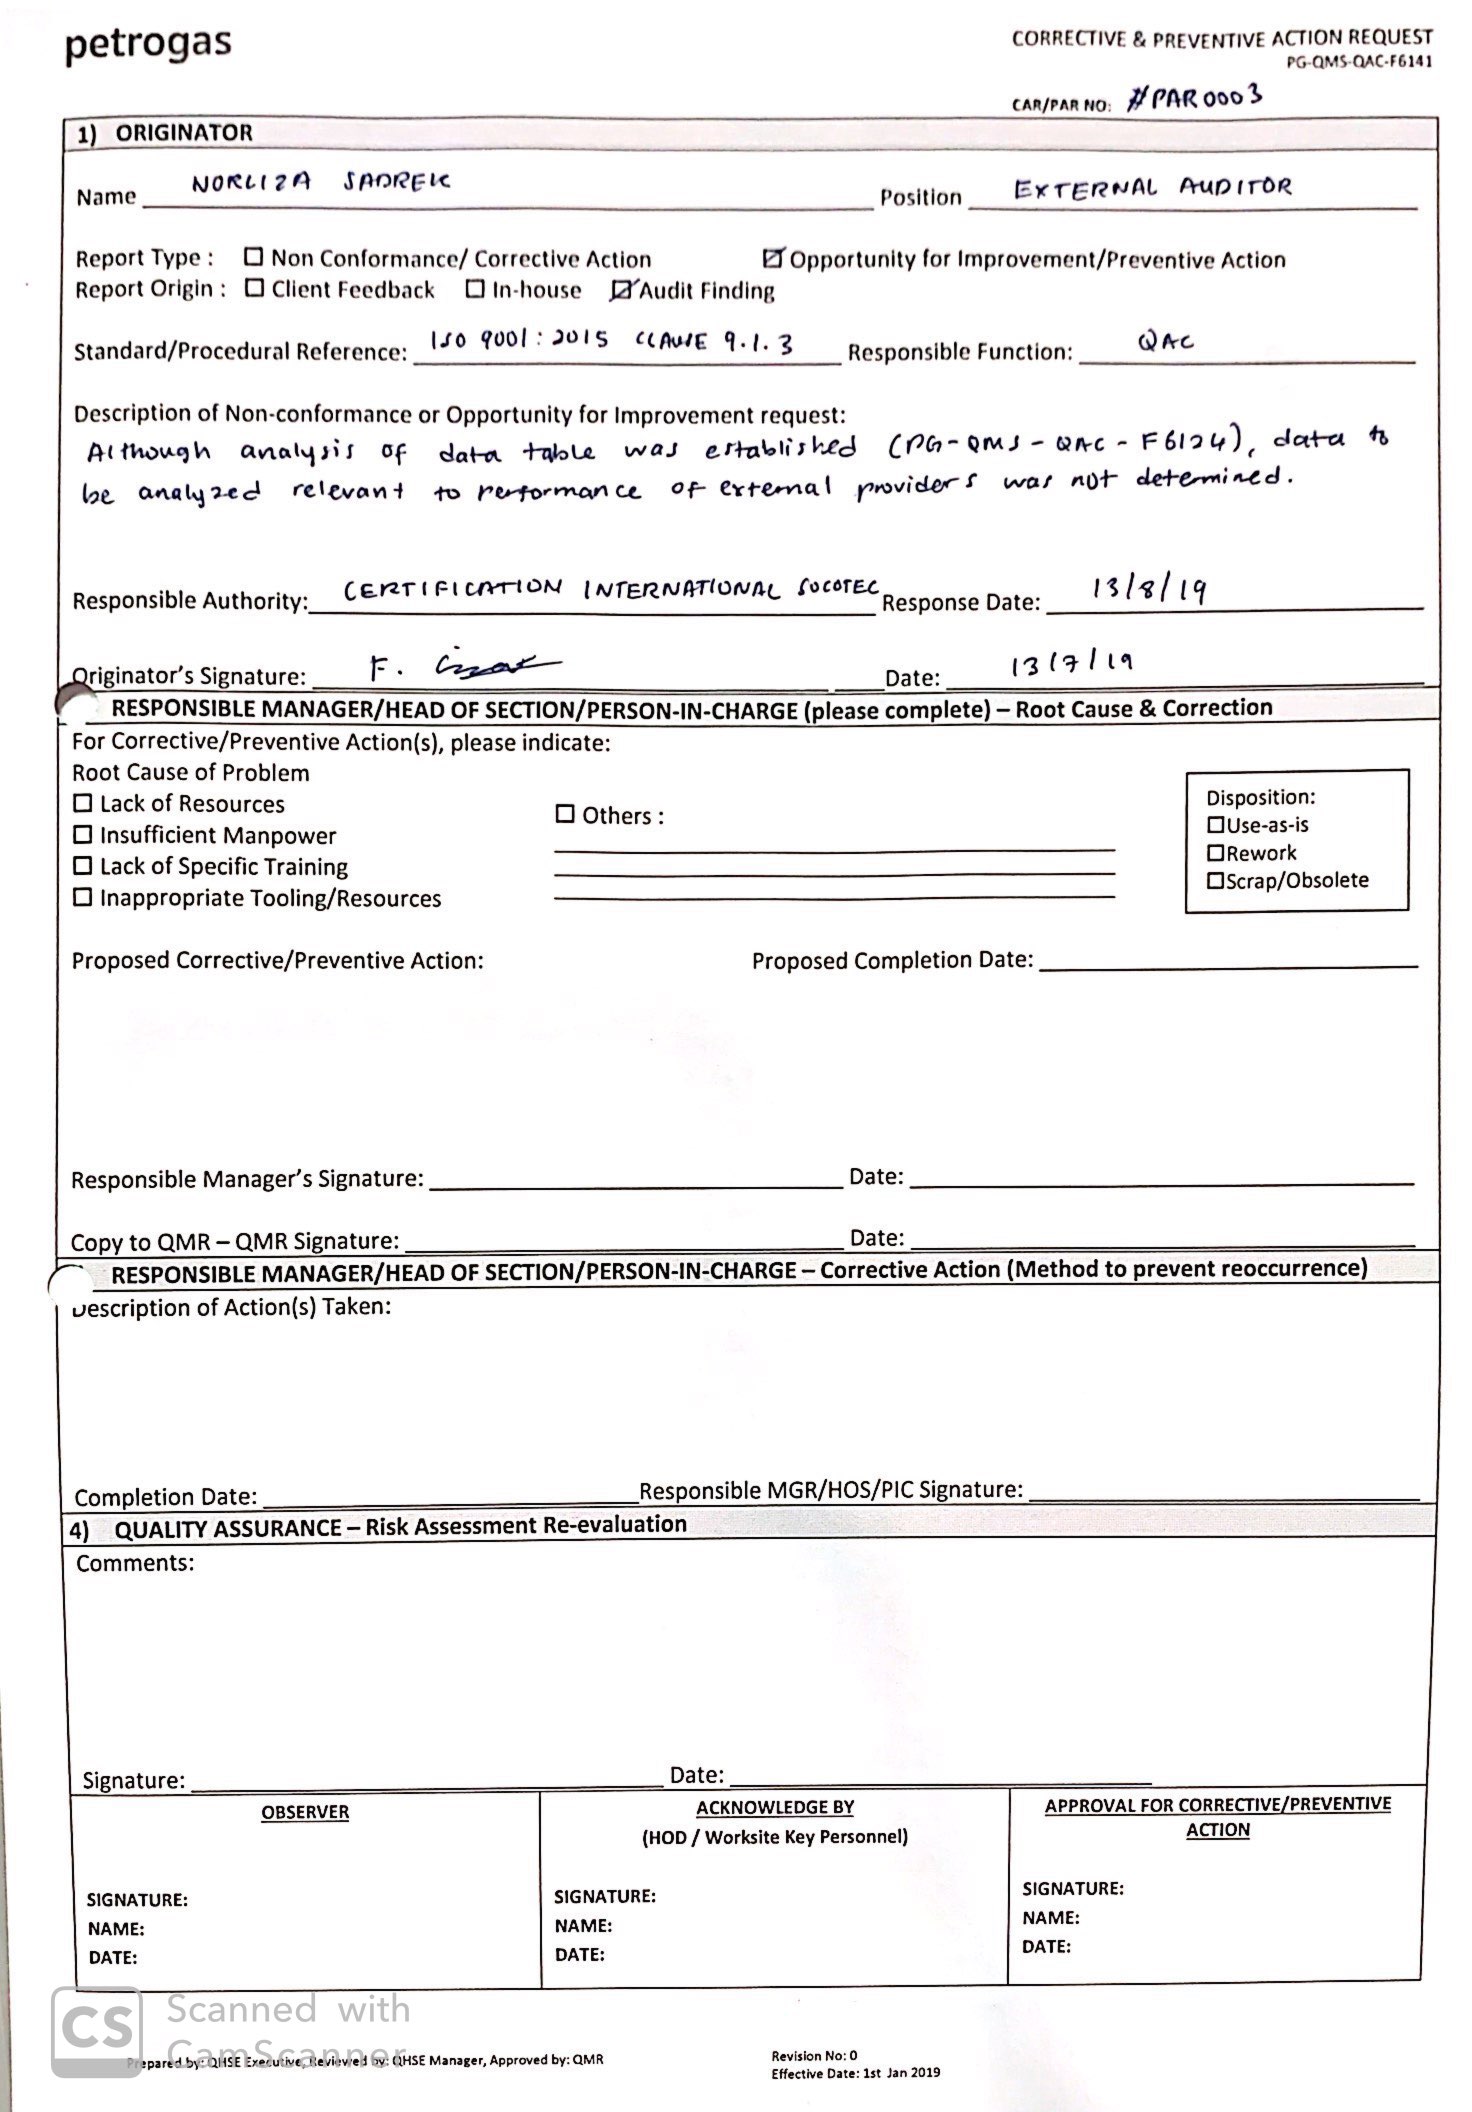 petrogas
CORRECTIVE & PREVENTIVE ACTION REQUEST
PG-QMS-QAC-F6141
CAR/PAR NO: #PAR0003
1) ORIGINATOR
Name NORLIZA SADREK Position EXTERNAL AUDITOR
Report Type : ☐ Non Conformance/ Corrective Action ☑ Opportunity for Improvement/Preventive Action
Report Origin : ☐ Client Feedback ☐ In-house ☑ Audit Finding
Standard/Procedural Reference: ISO 9001:2015 CLAUSE 9.1.3 Responsible Function: QAC
Description of Non-conformance or Opportunity for Improvement request:
Although analysis of data table was established (PG-QMS-QAC-F6124), data to
be analyzed relevant to performance of external providers was not determined.
Responsible Authority: CERTIFICATION INTERNATIONAL SOCOTEC Response Date: 13/8/19
Originator's Signature: F. Date: 13/7/19
RESPONSIBLE MANAGER/HEAD OF SECTION/PERSON-IN-CHARGE (please complete) – Root Cause & Correction
For Corrective/Preventive Action(s), please indicate:
Root Cause of Problem
☐ Lack of Resources
☐ Insufficient Manpower
☐ Lack of Specific Training
☐ Inappropriate Tooling/Resources
☐ Others :
Disposition:
☐Use-as-is
☐Rework
☐Scrap/Obsolete
Proposed Corrective/Preventive Action: Proposed Completion Date:
Responsible Manager's Signature: Date:
Copy to QMR – QMR Signature: Date:
RESPONSIBLE MANAGER/HEAD OF SECTION/PERSON-IN-CHARGE – Corrective Action (Method to prevent reoccurrence)
Description of Action(s) Taken:
Completion Date: Responsible MGR/HOS/PIC Signature:
4) QUALITY ASSURANCE – Risk Assessment Re-evaluation
Comments:
Signature: Date:
OBSERVER
SIGNATURE:
NAME:
DATE:
ACKNOWLEDGE BY
(HOD / Worksite Key Personnel)
SIGNATURE:
NAME:
DATE:
APPROVAL FOR CORRECTIVE/PREVENTIVE
ACTION
SIGNATURE:
NAME:
DATE:
CS Scanned with
CamScanner
Prepared by: QHSE Executive, Reviewed by: QHSE Manager, Approved by: QMR
Revision No: 0
Effective Date: 1st Jan 2019